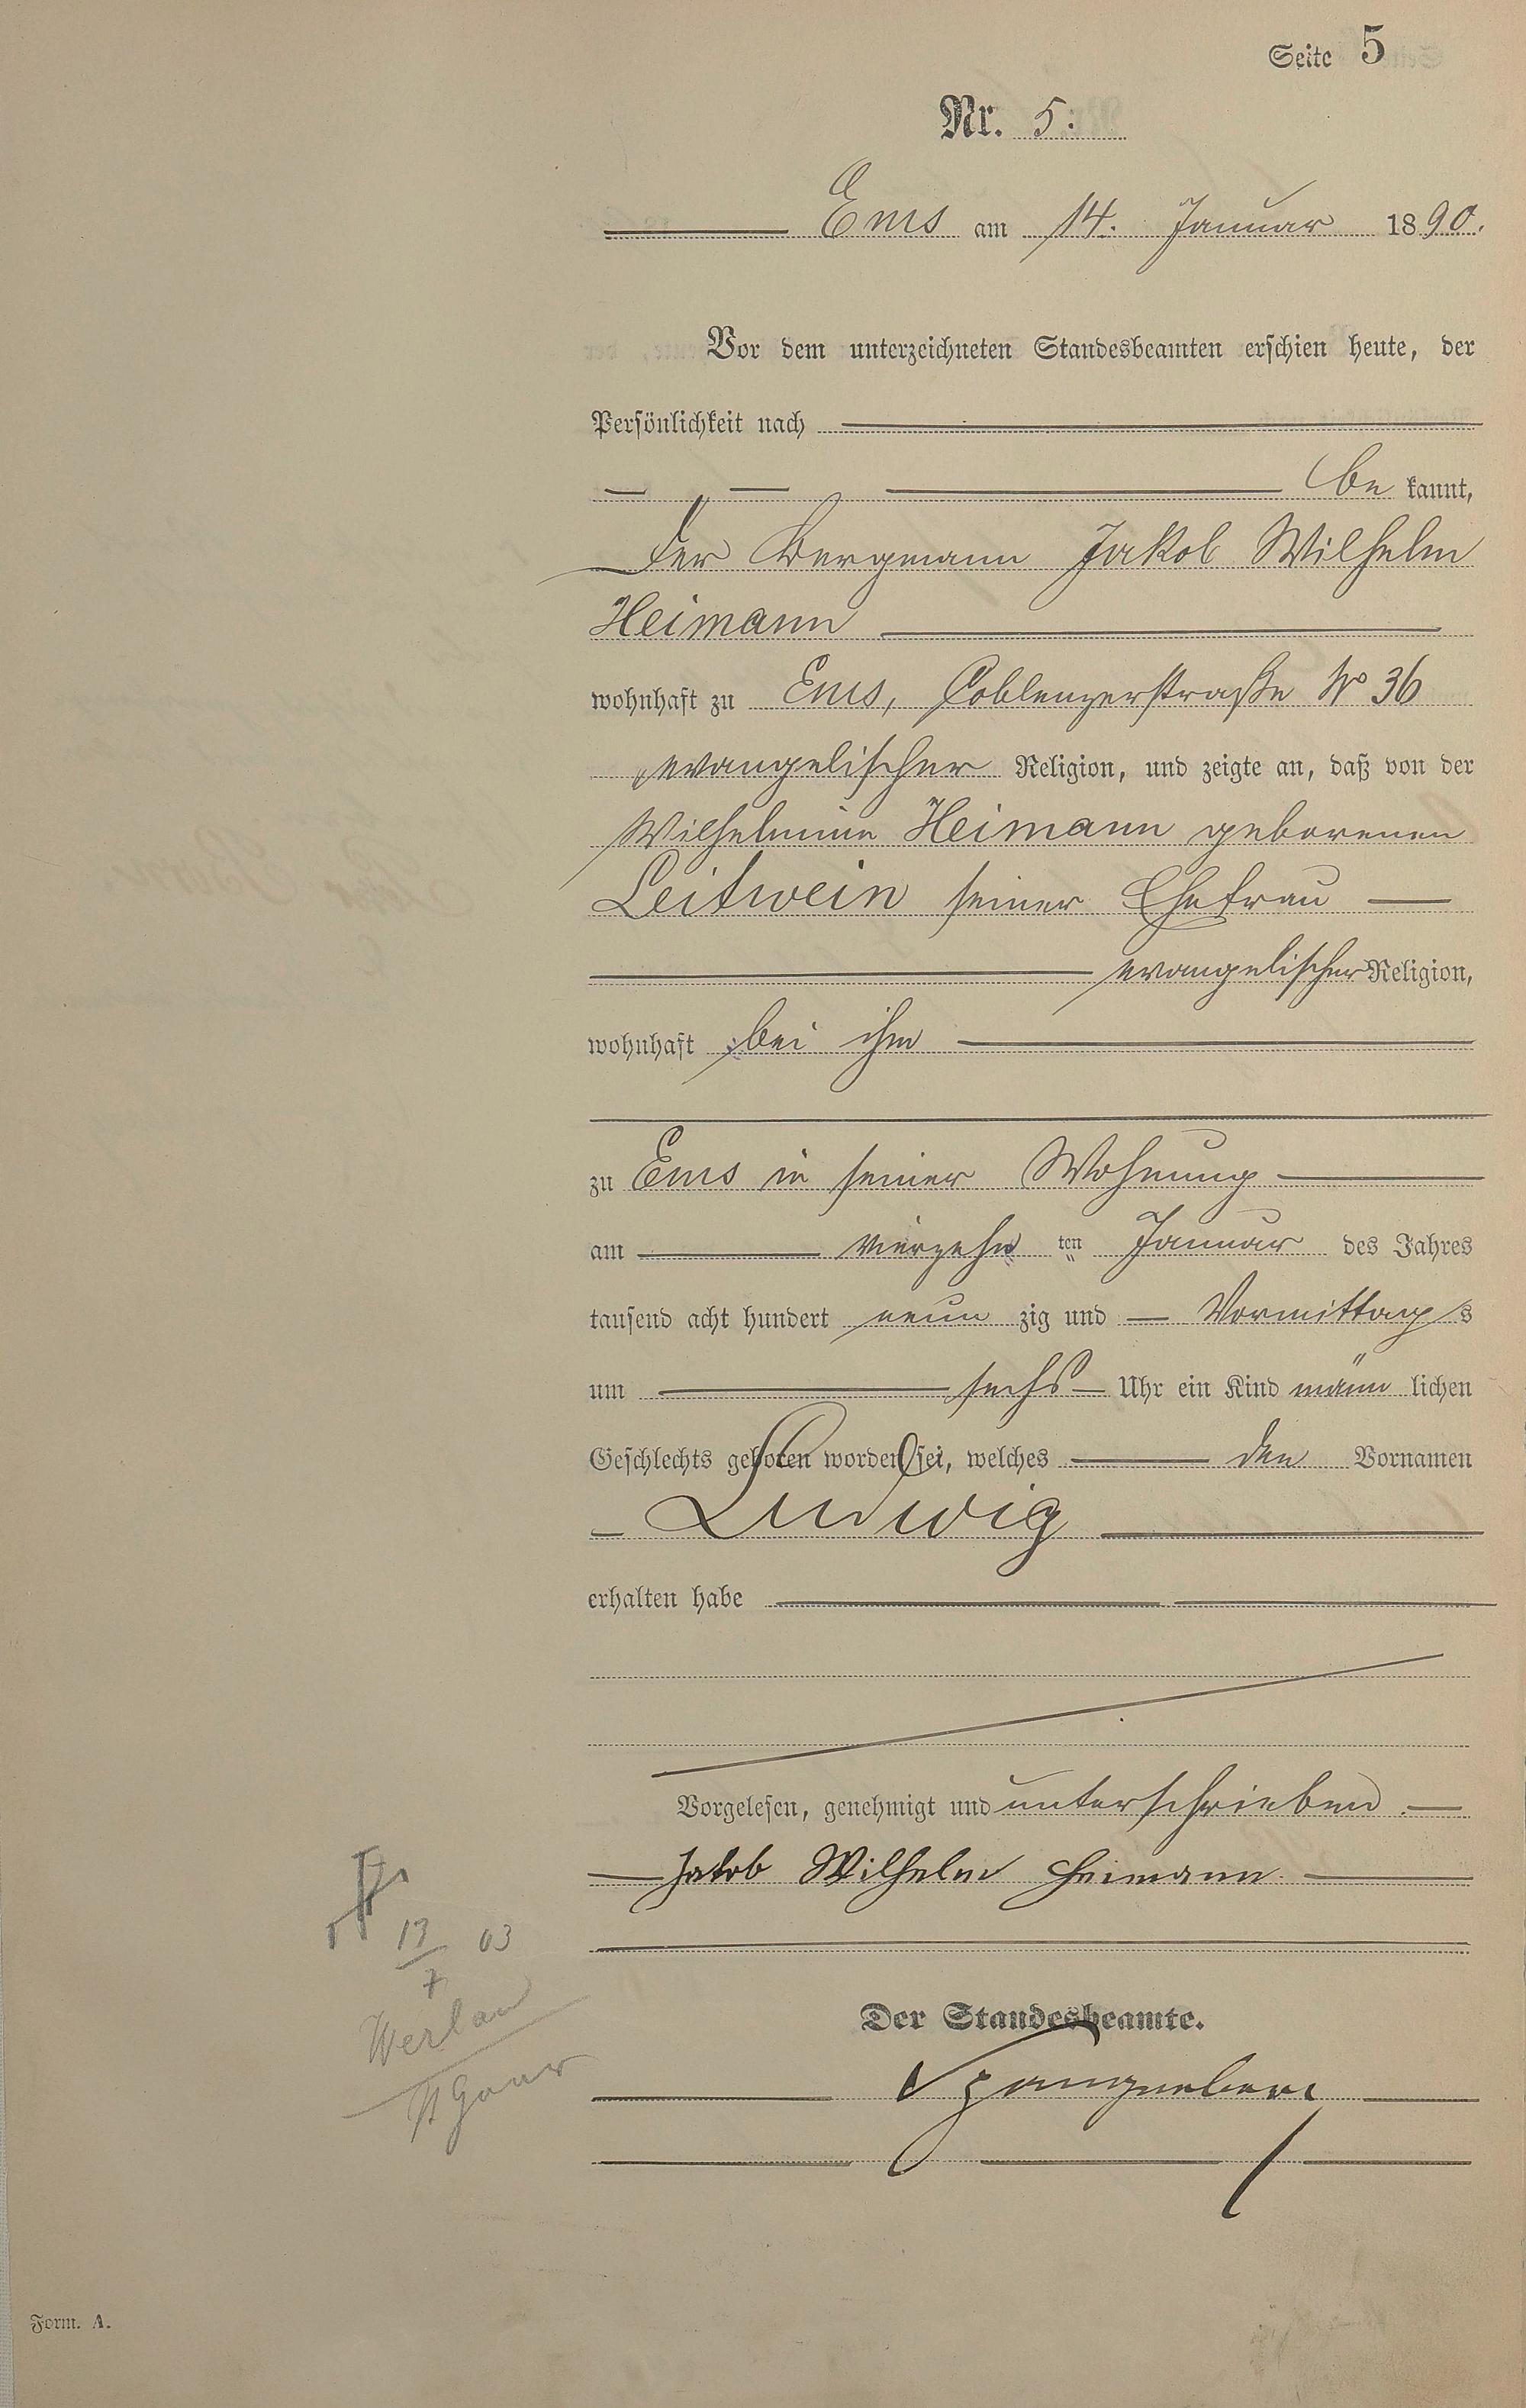 Seite 5
Nr. 5.
Ems am 14. Januar 1890.
Vor dem unterzeichneten Standesbeamten erschien heute, der
Persönlichkeit nach
be kannt,
der Bergmann Jakob Wilhelm
Heimann
wohnhaft zu Ems, Coblenzerstraße No 36
evangelischer Religion, und zeigte an, daß von der
Wilhelmine Heimann geborenen
Leitwein seiner Ehefrau
evangelischer Religion,
wohnhaft bei ihm
zu Ems in seiner Wohnung
am vierzehn ten Januar des Jahres
tausend acht hundert neun zig und Vormittag s
um sechs Uhr ein Kind männ lichen
Geschlechts geboren worden sei, welches den Vornamen
Ludwig
erhalten habe
Vorgelesen, genehmigt und unterschrieben.
Jakob Wilhelm Heimann
13/7 03
Werlau
St Goar
Der Standesbeamte.
Form. A.